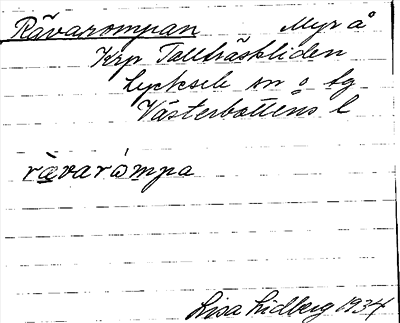 Rävarompan Myr å
Krp Tallträskliden
Lycksele sn o tg
Västerbottens l
rävarompa
Lisa Lidberg 1934